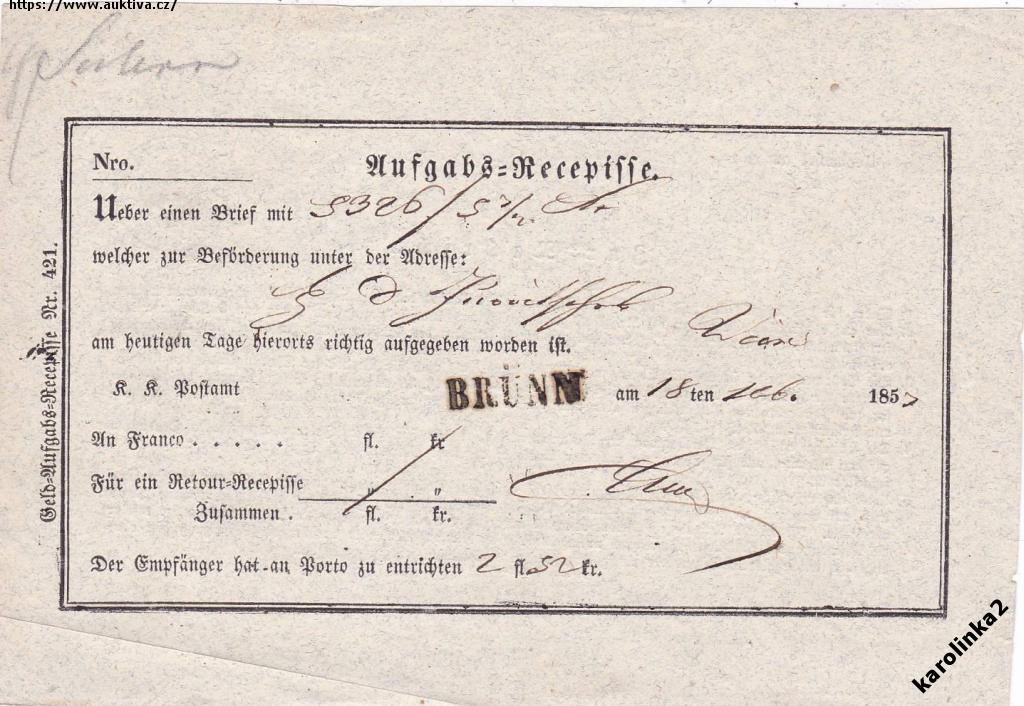 https://www.auktiva.cz/
Nro.
Aufgabs=Recepisse.
Ueber einen Brief mit
welcher zur Beförderung unter der Adresse:
Wien
am heutigen Tage hierorts richtig aufgegeben worden ist.
K. K. Postamt BRÜNN am 18 ten 185
An Franco . . . . . fl. kr
Für ein Retour-Recepisse " . "
Zusammen . fl. kr.
Der Empfänger hat an Porto zu entrichten 2 fl. 52 kr.
Geld=Aufgabs=Recepisse Nr. 421.
karolinka2